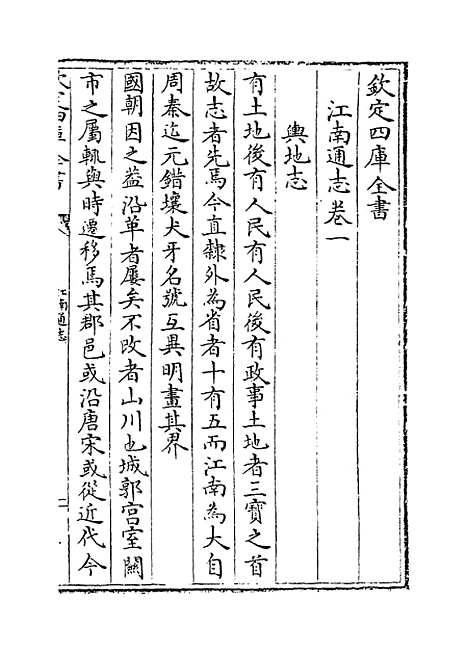 欽定四庫全書
江南通志卷一
輿地志
有土地後有人民有人民後有政事土地者三寶之首
故志者先焉今直隸外為省者十有五而江南為大自
周秦迄元錯壤犬牙名號互異明畫其界
國朝因之益沿革者屢矣不改者山川也城郭宮室闤
市之屬輒與時遷移焉其郡邑或沿唐宋或從近代今
江南通志